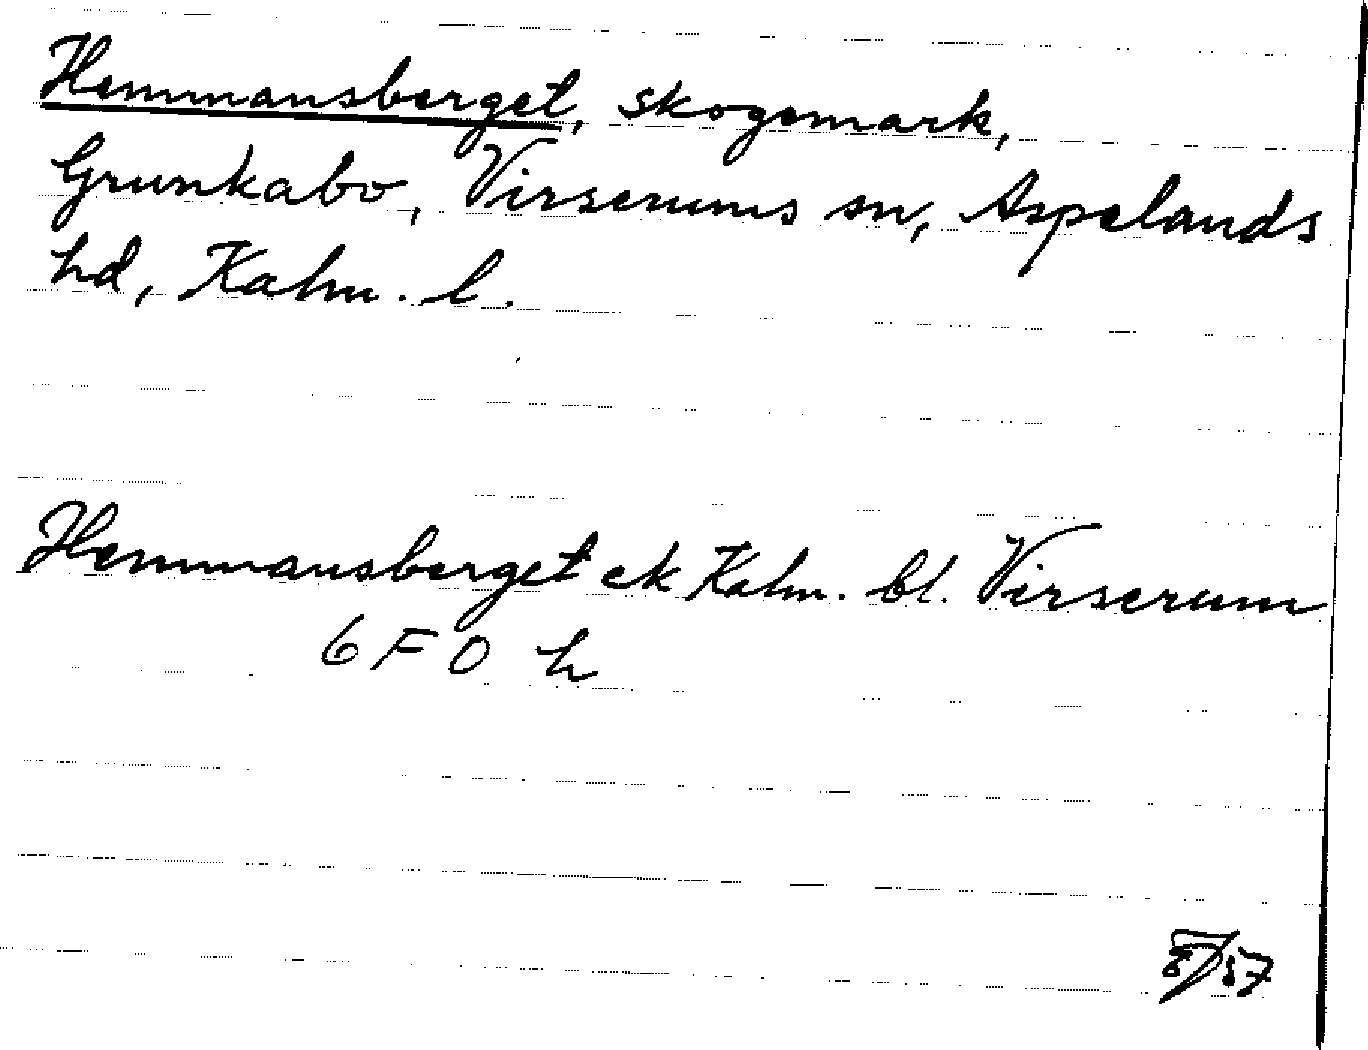 Hemmansberget, skogsmark,
Grunkabo, Virserums sn, Aspelands
hd, Kalm. l.
Hemmansberget ek Kalm. bl. Virserum
6 F 0 h
57